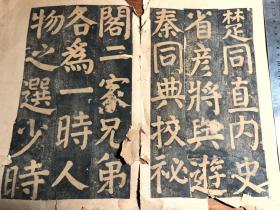 楚同直内史
省彦將與遊
秦同典校祕
閣二家兄弟
各爲一時人
物之選少時